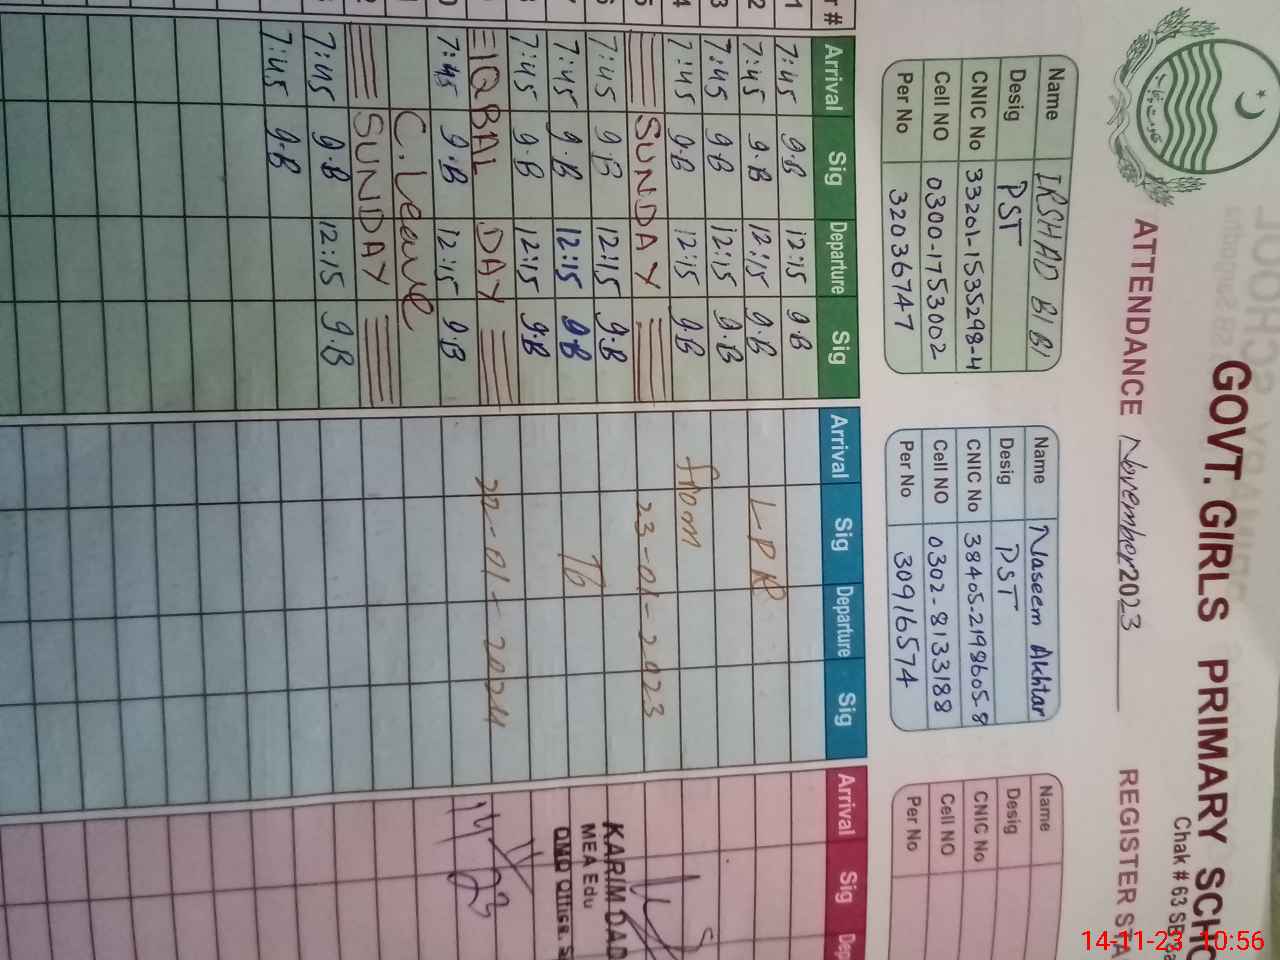 GOVT. GIRLS PRIMARY SCHO
Chak # 63 SB
ATTENDANCE November 2023 REGISTER STA
Name IRSHAD BIBI
Desig PST
CNIC No 33201-1535298-4
Cell NO 0300-1753002
Per No 32036747
Name Naseem Akhtar
Desig PST
CNIC No 38405-2198605-8
Cell NO 0302-8133188
Per No 30916574
Name
Desig
CNIC No
Cell NO
Per No
r # Arrival Sig Departure Sig Arrival Sig Departure Sig Arrival Sig Dep
1 7:45 9.B 12:15 9.B
2 7:45 9.B 12:15 9.B LPR
3 7:45 9.B 12:15 9.B
4 7:45 9.B 12:15 9.B from
5 SUNDAY 23-01-2023
6 7:45 9.B 12:15 9.B
7 7:45 9.B 12:15 9.B To
8 7:45 9.B 12:15 9.B
IQBAL DAY 22-01-2024
0 7:45 9.B 12:15 9.B
1 C.Leave
2 SUNDAY
7:45 9.B 12:15 9.B
7:45 9.B
KARIM DAD
MEA Edu
DMO Office. S
14/11/23
14-11-23 10:56